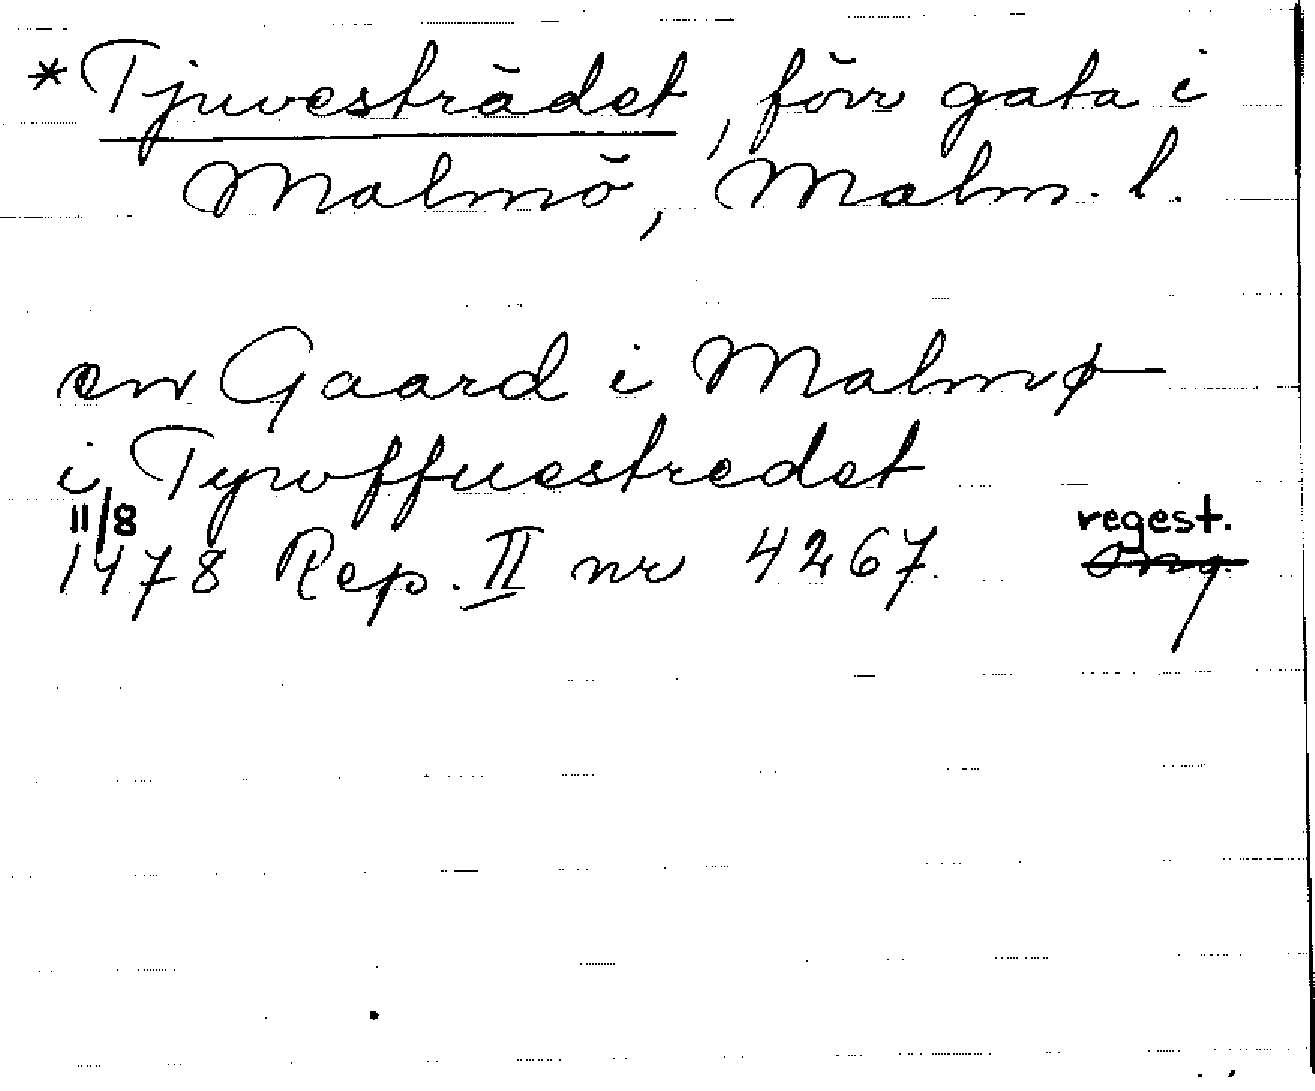 *Tjuvesträdet, förr gata i
Malmö, Malm. l.
en Gaard i Malmø
i Tywffuestredet
11/8 regest.
1478 Rep. II nr 4267 Ing.